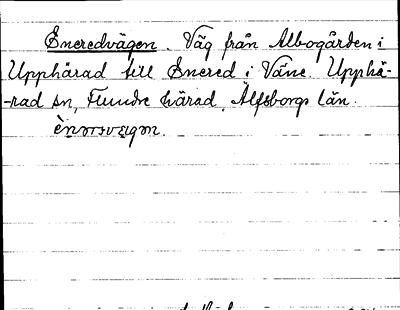 Eneredvägen. Väg från Albogården i
Upphärad till Enered i Väne. Upphä-
-rad sn, Flundre härad, Älfsborgs län.